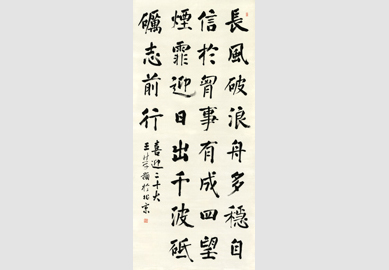 長風破浪舟多穩自
信於胷事有成四望
煙霏迎日出千波砥
礪志前行
喜迎二十大
王 於北京